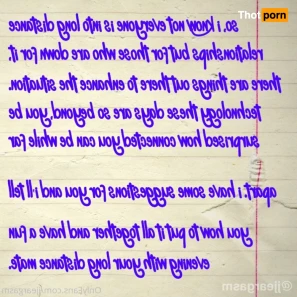 Thot porn
so, i know not everyone is into long distance
relationships but for those who are down for it,
there are things out there to enhance the situation.
technology these days are so beyond, be you
surprised how connected you can be while far
apart, i have some suggestions for you and i'll tell
you how to put it all together and have a fun
evening with your long distance mate.
OnlyFans.com/jjeargasm
@jjeargasm